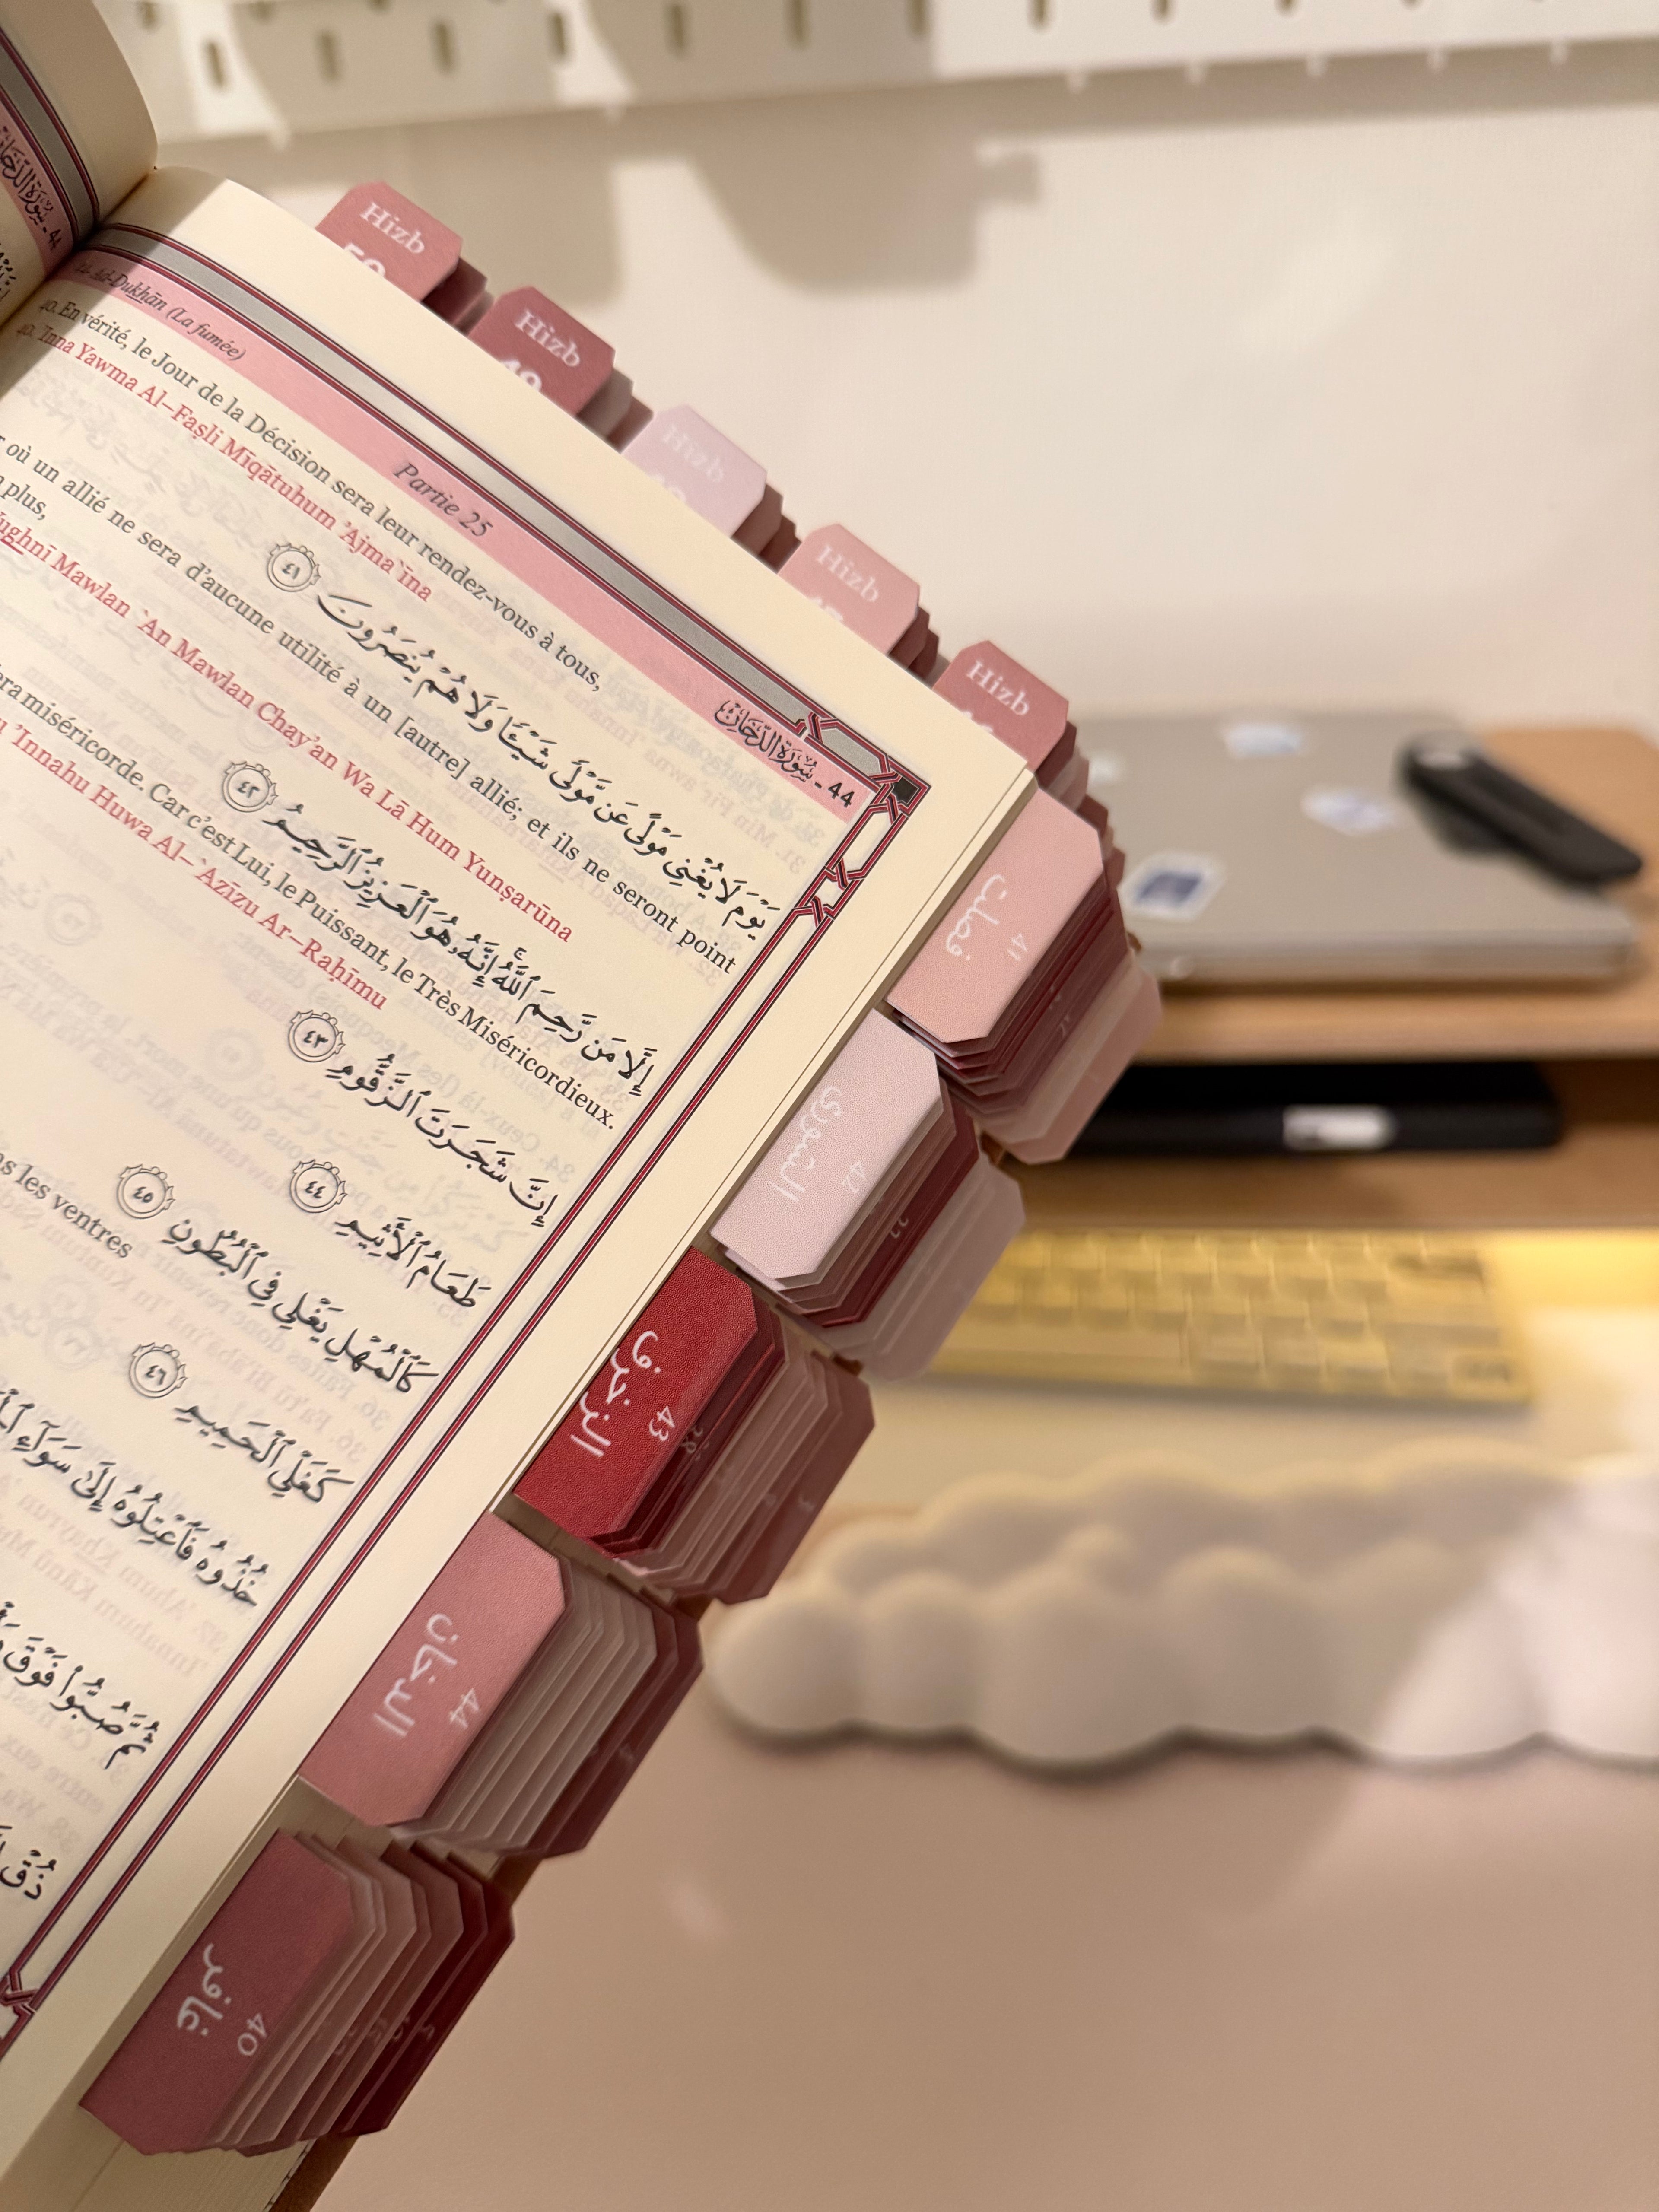 Hizb
Hizb
Hizb
Hizb
Hizb
Ad-Dukhān (La fumée)
Partie 25
44 - سُورَةُ الدُّخَانِ
40. En vérité, le Jour de la Décision sera leur rendez-vous à tous,
40. 'Inna Yawma Al-Faṣli Mīqātuhum 'Ajma`īna
يَوْمَ لَا يُغْنِى مَوْلًى عَن مَّوْلًى شَيْـًٔا وَلَا هُمْ يُنصَرُونَ ٤١
où un allié ne sera d'aucune utilité à un [autre] allié; et ils ne seront point
plus,
ughnī Mawlan `An Mawlan Chay'an Wa Lā Hum Yunṣarūna
إِلَّا مَن رَّحِمَ ٱللَّهُ ۚ إِنَّهُۥ هُوَ ٱلْعَزِيزُ ٱلرَّحِيمُ ٤٢
miséricorde. Car c'est Lui, le Puissant, le Très Miséricordieux.
'Innahu Huwa Al-`Azīzu Ar-Raḥīmu
إِنَّ شَجَرَتَ ٱلزَّقُّومِ ٤٣
طَعَامُ ٱلْأَثِيمِ ٤٤
كَٱلْمُهْلِ يَغْلِى فِى ٱلْبُطُونِ ٤٥
les ventres
كَغَلْىِ ٱلْحَمِيمِ ٤٦
خُذُوهُ فَٱعْتِلُوهُ إِلَىٰ سَوَآءِ
ثُمَّ صُبُّوا۟ فَوْقَ
ذُقْ
فصلت 41
الشورى 42
الزخرف 43
الدخان 44
غافر 40